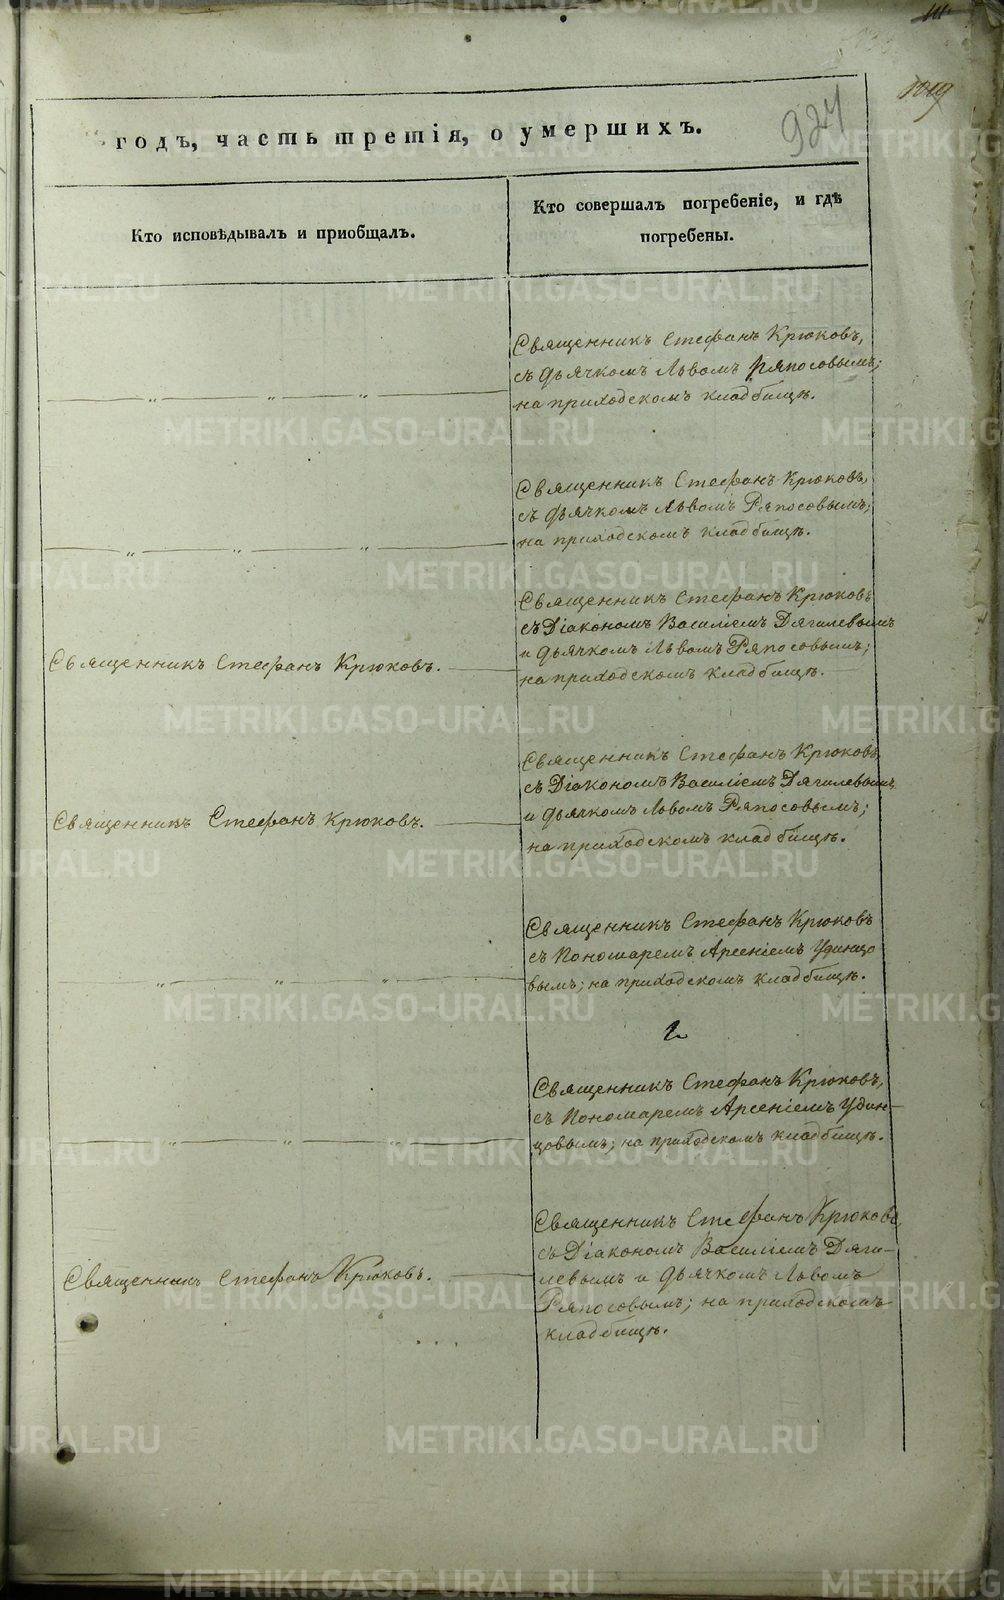 1019
924
годъ, часть третія, о умершихъ.
Кто исповѣдывалъ и приобщалъ.
Кто совершалъ погребеніе, и гдѣ
погребены.
Священникъ Стефанъ Крюковъ,
съ дьячкомъ Львомъ Ряпосовымъ;
на приходскомъ кладбищѣ.
Священникъ Стефанъ Крюковъ,
съ дьячкомъ Львомъ Ряпосовымъ;
на приходскомъ кладбищѣ.
Священникъ Стефанъ Крюковъ.
Священникъ Стефанъ Крюковъ
съ Діакономъ Василіемъ Дягилевымъ
и дьячкомъ Львомъ Ряпосовымъ;
на приходскомъ кладбищѣ.
Священникъ Стефанъ Крюковъ.
Священникъ Стефанъ Крюковъ
съ Діакономъ Василіемъ Дягилевымъ
и дьячкомъ Львомъ Ряпосовымъ;
на приходскомъ кладбищѣ.
Священникъ Стефанъ Крюковъ
съ Пономаремъ Арсеніемъ Удинцо
вымъ; на приходскомъ кладбищѣ.
Священникъ Стефанъ Крюковъ,
съ Пономаремъ Арсеніемъ Удин-
цовымъ; на приходскомъ кладбищѣ.
Священникъ Стефанъ Крюковъ.
Священникъ Стефанъ Крюковъ,
съ Діакономъ Василіемъ Дяги-
левымъ и дьячкомъ Львомъ
Ряпосовымъ; на приходскомъ
кладбищѣ.
METRIKI.GASO-URAL.RU